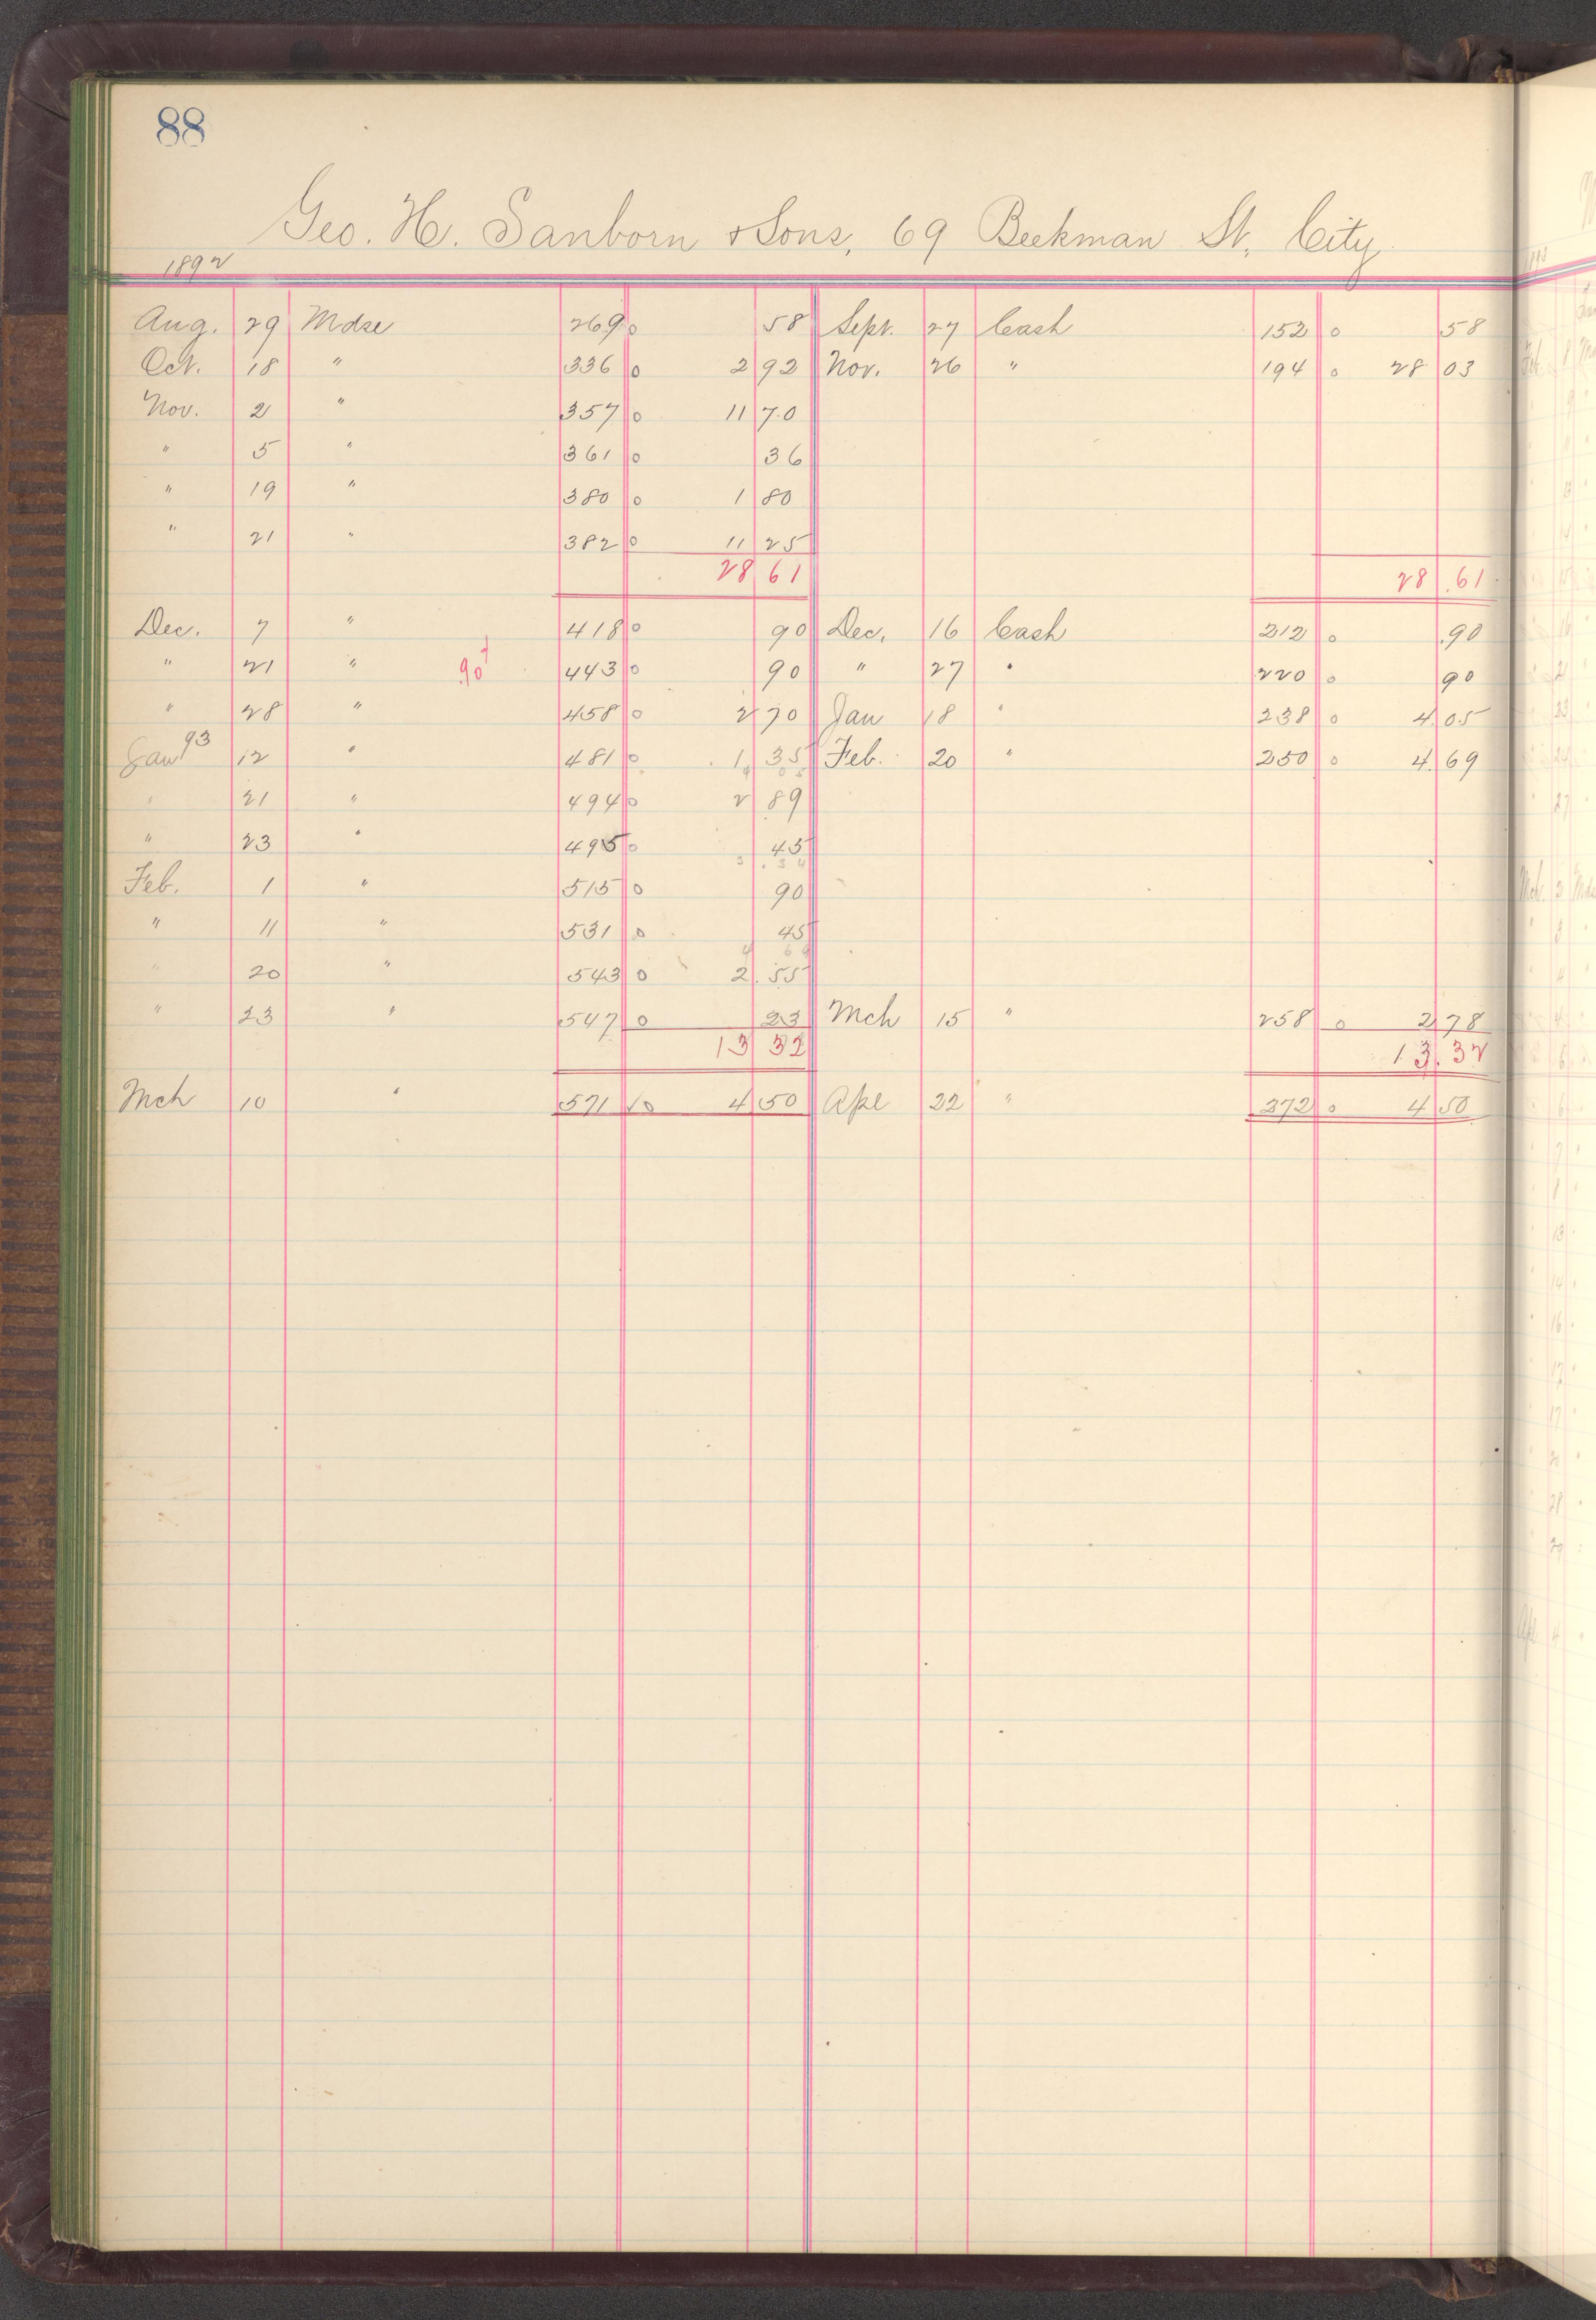 88
Geo. H. Sanborn & Sons, 69 Beekman St. City
1892
Aug. 29 Mdse 269 o 58 Sept. 27 Cash 152 o 58
Oct. 18 " 336 o 2 92 Nov. 26 " 194 o 28 03
Nov. 2 " 357 o 11 70
" 5 " 361 o 36
" 19 " 380 o 1 80
" 21 " 382 o 11 25
28 61 28.61
Dec. 7 " 418 o 90 Dec. 16 Cash 212 o .90
" 21 " 90 443 o 90 " 27 " 220 o 90
" 28 " 458 o 2 70 Jan 18 " 238 o 4.05
Jan 93 12 " 481 o 1 35 Feb. 20 " 250 o 4.69
4 05
" 21 " 494 o 2 89
" 23 " 495 o 45
3.34
Feb. 1 " 515 o 90
" 11 " 531 o 45
4 69
" 20 " 543 o 2.55
" 23 " 547 o 23 Mch 15 " 258 o 2 78
13 32 13.32
Mch 10 " 571 o 4 50 Apl 22 " 272 o 4 50